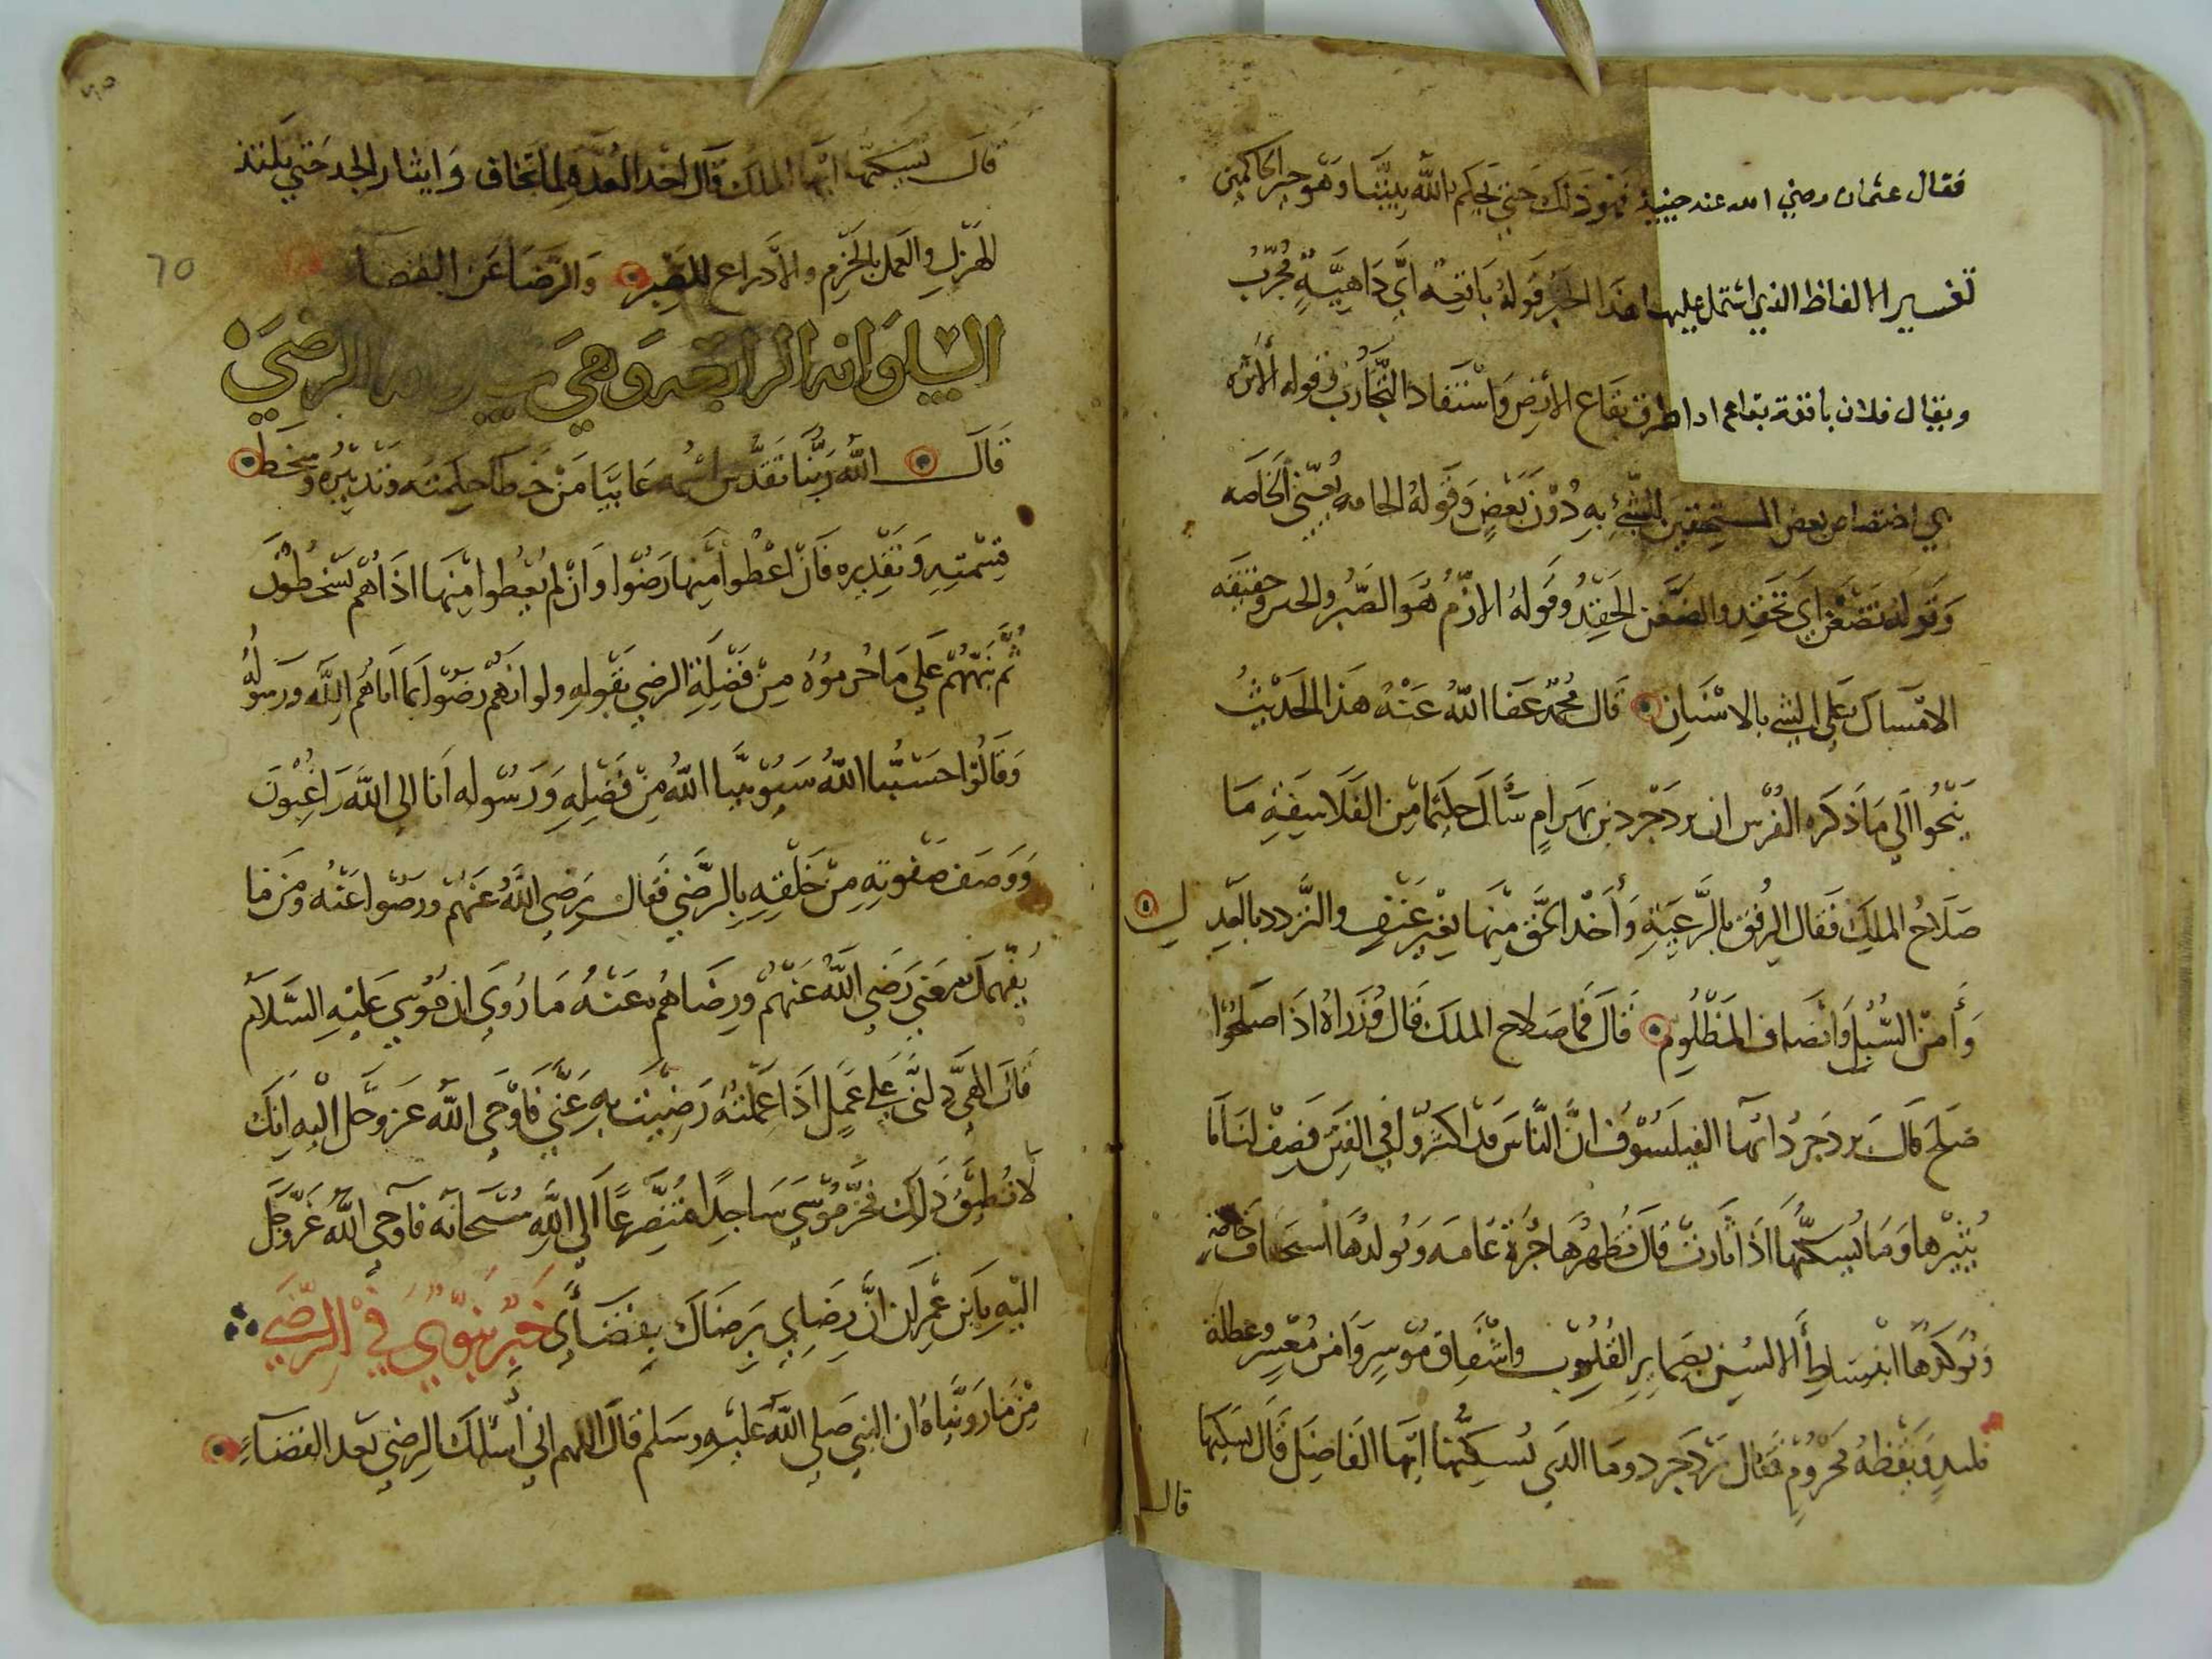 فقال عثمان رضي الله عنه حينيذ فهو ذلك حتي يحكم الله بيننا وهو خير الحاكمين
تفسير الالفاظ الذي اشتمل عليها هذا الخبر قوله باقعة اي داهية مجرب
ويقال فلان باقعة بقاع اذا طرق بقاع الارض واستفاد التجارب وقوله الاثره
هي اختصاص بعض المستحقين للشيء به دون بعض وقوله الحامه يعني الخاصه
وقوله تضغن اي تحقد والضغن الحقد وقوله الازم هو الصبر والحـ وحقيقه
الامساك على الشي بالاسنان قال محمد عفا الله عنه هذا الحديث
ينحوا الي ما ذكره الفرس ان يزدجرد بن بهرام سال حكيما من الفلاسفة ما
صلاح الملك فقال الرفق بالرعية واخذ الحق منها بغير عنف والتودد بالعدل
وأمن السبل وانصاف المظلوم قال فما صلاح الملك قال وزراه اذا صلحوا
صلح قال يزدجرد ايها الفيلسوف ان الناس قد اكثروا في الفتن فصف لنا ما
يثيرها وما يسكنها اذا ثارت قال تظهرها جرة عامه ويولدها استخفاف خاصة
وتوكدها انبساط الالسن بضماير القلوب واشفاق موسر وامن معسر وغفلة
ملتذ ويقظه محروم فقال يزدجرد وما الذي يسكنها ايها الفاضل قال يسكنها
قال
٦٥
70
قال يسكنها ايها الملك قال اخذ العده لما تخاف وايثار الجد حتي يلتذ
الهزل والعمل بالحزم والادراع للصبر والرضا عن القضاء
السلوانه الرابعه وهي سلوانه الرضي
قال الله ربنا تقدس اسمه عايبا من خطا حكمته وتدبيره وسخط
قسمته وتقديره فان اعطوا منها رضوا وان لم يعطوا منها اذا هم يسخطون
ثم نبههم على ما حرموه من فضلة الرضي بقوله ولو انهم رضوا بما اتاهم الله ورسوله
وقالوا حسبنا الله سيوتينا الله من فضله ورسوله انا الى الله راغبون
ووصف صفوته من خلقه بالرضي فقال رضي الله عنهم ورضوا عنه ومن ما
يفهمك معني رضي الله عنهم ورضاهم عنه ما روي ان موسي عليه السلام
قال الهي دلني علي عمل اذا عملته رضيت به عني فاوحي الله عز وجل اليه انك
لا تطيق ذلك فخر موسي ساجدا متضرعا الي الله سبحانه فاوحي الله عز وجل
اليه يابن عمران ان رضاي برضاك بقضائي خبر نبوي في الرضي
من ما رويناه ان النبي صلي الله عليه وسلم قال اللهم اني اسلك الرضي بعد القضاء